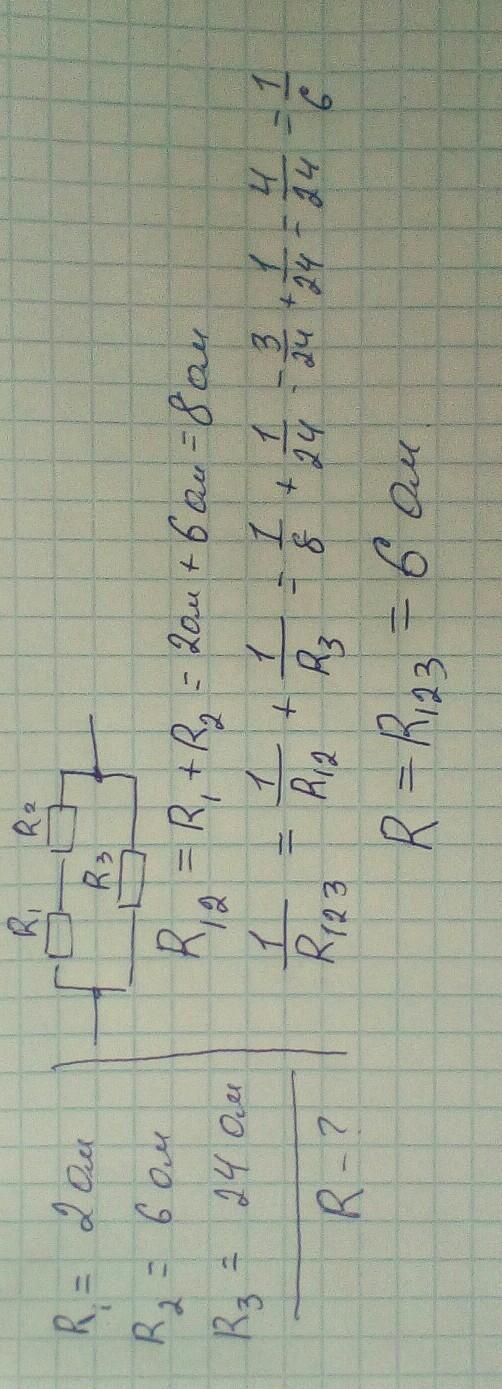 R₁ = 2 Ом
R₂ = 6 Ом
R₃ = 24 Ом
R - ?
R₁ R₂
R₃
R₁₂ = R₁ + R₂ = 2 Ом + 6 Ом = 8 Ом
1/R₁₂₃ = 1/R₁₂ + 1/R₃ = 1/8 + 1/24 = 3/24 + 1/24 = 4/24 = 1/6
R = R₁₂₃ = 6 Ом.